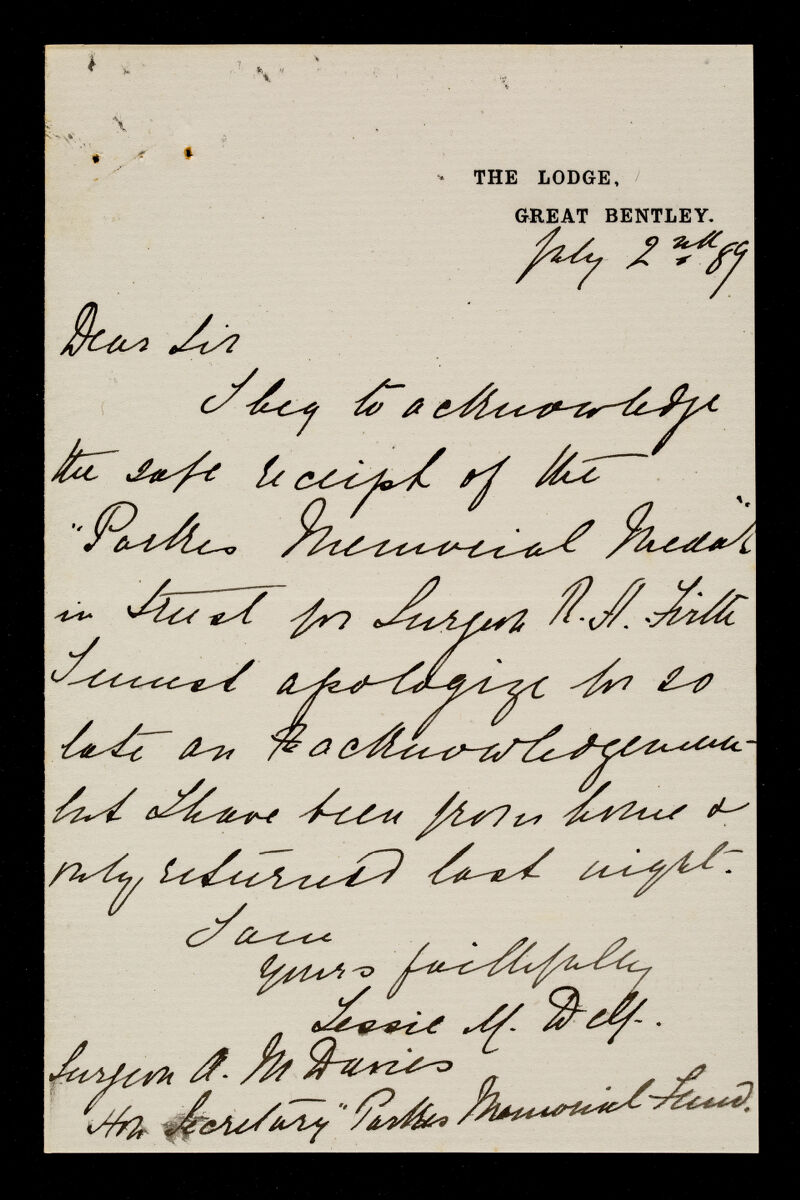 THE LODGE,
GREAT BENTLEY.
July 2nd 89
Dear Sir
I beg to acknowledge
the safe receipt of the
"Parkes Memorial Medal"
in trust for Surgeon R. H. Firth
I must apologize for so
late an acknowledgement
but I have been from home &
only returned last night.
I am
Yours faithfully
Jessie M. Delf.
Surgeon A. M Davies
Hon Secretary "Parkes Memorial Fund.